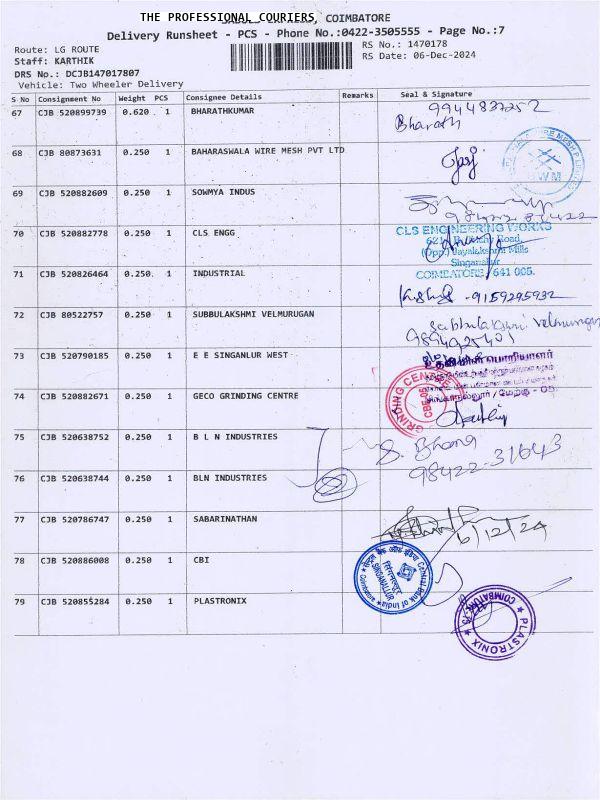 THE PROFESSIONAL COURIERS, COIMBATORE
Delivery Runsheet - PCS - Phone No.:0422-3505555 - Page No.:7
Route: LG ROUTE
RS No.: 1470178
Staff: KARTHIK
RS Date: 06-Dec-2024
DRS No.: DCJB147017807
Vehicle: Two Wheeler Delivery
S No Consignment No Weight PCS Consignee Details Remarks Seal & Signature
67 CJB 520899739 0.620 1 BHARATHKUMAR 9944837252
Bharath
68 CJB 80873631 0.250 1 BAHARASWALA WIRE MESH PVT LTD
69 CJB 520882609 0.250 1 SOWMYA INDUS
70 CJB 520882778 0.250 1 CLS ENGG
CLS ENGINEERING WORKS
(Opp.) Jayalakshmi Mills
Singanallur
COIMBATORE 641 005.
71 CJB 520826464 0.250 1 INDUSTRIAL
-9159295932
72 CJB 80522757 0.250 1 SUBBULAKSHMI VELMURUGAN
Subbulakshmi Velmurugan
9894925401
73 CJB 520790185 0.250 1 E E SINGANLUR WEST
74 CJB 520882671 0.250 1 GECO GRINDING CENTRE
GRINDING CENTRE
75 CJB 520638752 0.250 1 B L N INDUSTRIES
S. Bhana
98422-31643
76 CJB 520638744 0.250 1 BLN INDUSTRIES
77 CJB 520786747 0.250 1 SABARINATHAN
6/12/24
78 CJB 520886008 0.250 1 CBI
Central Bank of India
SINGANALLUR
79 CJB 520855284 0.250 1 PLASTRONIX
PLASTRONIX
COIMBATORE